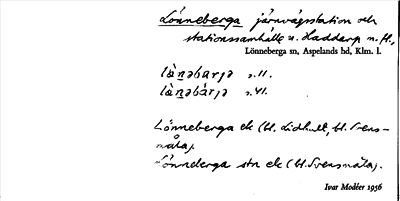 Lönneberga järnvägsstation och
stationssamhälle u. Haddarp m.fl.,
Lönneberga sn, Aspelands hd, Klm. l.
lànəbarja s.11.
lànəbárja s.41.
Lönneberga ek (bl. Lidhult, bl. Svens-
måla).
Lönneberga stn ek (bl. Svensmåla).
Ivar Modéer 1936